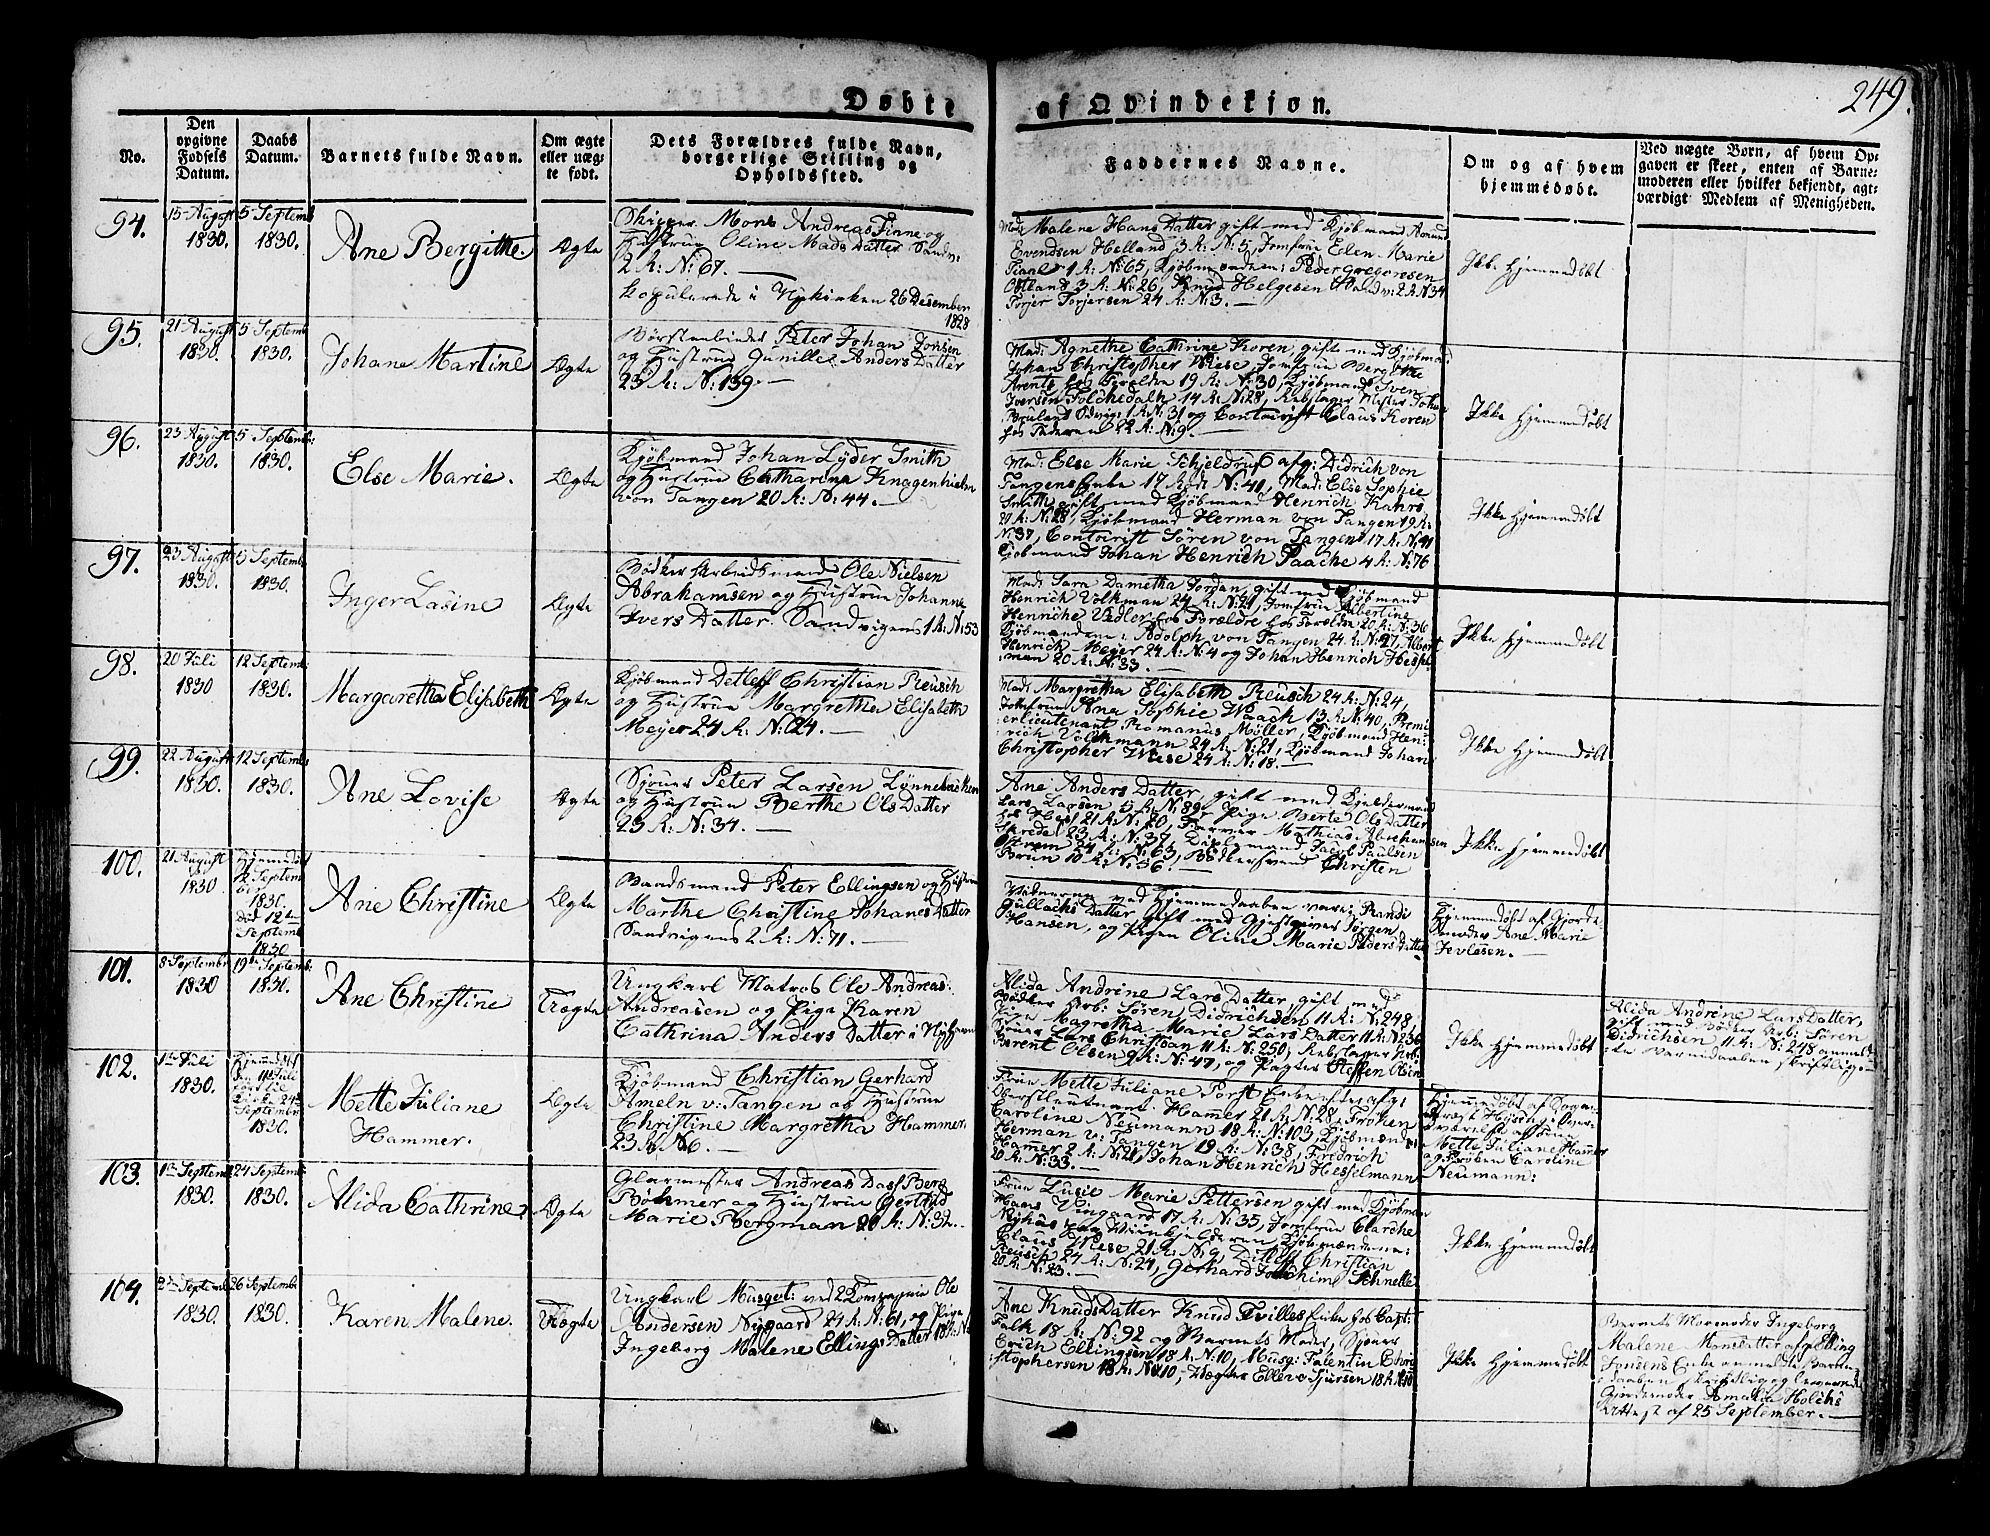 Døbte af Qvindekjøn.
249.
No.
Den opgivne Fødsels Datum.
Daabs Datum.
Barnets fulde Navn.
Om ægte eller uægte født.
Dets Forældres fulde Navn, borgerlige Stilling og Opholdssted.
Faddernes Navne.
Om og af hvem hjemmedøbt.
Ved uægte Børn, af hvem Opgaven er skeet, enten af Barnemoderen eller hvilket bekjendt, agtværdigt Medlem af Menigheden.
94.
15 August 1830.
5 Septemb 1830.
Ane Bergithe.
Ægte
Skipper Mons Andreas Finne og
Hustrue Oline Mads Datter Sandv:
2 R: N: 67. —
Copulerede i Nykirken 26 Desember
1828
Mad: Malene Hans Datter gift med Kjøbmand Amund
Evendsen Helland 3 R: N: 5, Jomfrue Elen Marie
1 R: N: 65, Kjøbmændene: Peder Gregoriusen
Østland 3 R: N: 26, Knud Helgesen Sandv: 2 R N 34
Torjer Torjersen 24 R: N: 3. —
Ikke Hjemmedøbt
95.
21 August 1830.
5 Septemb 1830.
Johane Martine
Ægte
Børstenbinder Peter Johan Jonsen
og Hustrue Gunille Anders Datter
23 R: N: 139. —
Mad: Agnethe Cathrine Koren, gift med Kjøbmand
Johan Christopher Wiese, Jomfrue Bergitte
Arentz hos Forældre 19 R: N: 30, Kjøbmand Sven
Iversen Folchedalh 14 R: N: 28, Rebslager Mester Johan
1 R: N: 31 og Contoirist Claus Koren
hos Faderen 22 R: N: 9. —
Ikke Hjemmedøbt
96.
23 August 1830.
5 Septemb: 1830.
Else Marie.
Ægte
Kjøbmand Johan Lyder Smith
og Hustrue Catharina Knagenhielm
von Tangen 20 R: N: 44. —
Mad: Else Marie Schjeldrup afg: Didrich von
Tangens Enke 17 Rode N: 41, Mad: Else Sophie
Smith, gift med Kjøbmand Henrich Kahrs
20 R: N: 28, Kjøbmand Herman von Tangen 19 R:
N: 37, Contoirist Søren von Tangen 17 R: N: 41
Kjøbmand Johan Henrich Paasche 4 R: N: 76
Ikke Hjemmedøbt
97.
23 August 1830.
5 Septemb 1830.
Inger Lasine
Ægte
Bødker Arbeidsmand Ole Nielsen
Abrahamsen og Hustrue Johanne
Ivers Datter. Sandvigens 1 R: N: 53
Mad: Sara Dametha Jordan, gift med Kjøbmand
Henrich Volkman 24 R: N: 21, Jomfrue Albertine
Henriche Vedler hos Forældre 20 R: N: 36
Kjøbmændene: Adolph von Tangen 24 R: N: 27, Albert
Henrich Meyer 24 R: N: 4 og Johan Henrich Hessel-
man 20 R: N: 33. —
Ikke Hjemmedøbt
98.
20 Juli 1830
12 Septemb: 1830.
Margaretha Elisabeth
Ægte
Kjøbmand Detleff Christian Reusch
og Hustrue Margretha Elisabeth
Meyer 24 R: N: 24. —
Mad: Margretha Elisabeth Reusch 24 R: N: 24,
Jomfrue Ana Sophie Waach 13 R: N: 40, Premi-
erlieutenant Romanus Møller, Kjøbmand Hen-
rich Volchmann 24 R: N: 21, Kjøbmand Johan
Christopher Wiese 24 R: N: 18. —
Ikke Hjemmedøbt
99.
22 August 1830.
12 Septemb 1830.
Ane Lovise
Ægte
Sjouer Peter Larsen Lønnebackken
og Hustrue Berthe Ols Datter
23 R: N: 34. —
Ane Anders Datter, gift med
Lars Larsen 5 R: N: 89, Pige Berte Ols Datter
hos Hest 21 R: N: 20, Farver Mathias Abrahamsen
23 R: N: 37, Jacob Paulsen
Strøm 24 R: N: 63, Bødkersvend Christen
Brun 10 R: N: 36. —
Ikke Hjemmedøbt
100.
21 August 1830
Hjemmedøbt 12 September 1830. Død 12te Septemb 1830.
Ane Christine
Ægte
Baadsmand Peter Ellingsen og Hustrue
Marthe Christine Johanes Datter
Sandvigens 2 R: N: 71. —
Vidnerne ved Hjemmedaaben vare: Randi
Gullachs Datter, gift med Gjestgiver Jørgen
Hansen, og Pigen Oline Marie Peders Datter
Hjemmedøbt af Gjorde-
moder Ane Marie
101.
8 Septemb 1830
19de Septemb: 1830.
Ane Christine
Uægte
Ungkarl Matros Ole Andreas:
Andreasen og Pige Karen
Cathrina Anders Datter i
Alida Andrine Lars Datter, gift med
Bødker Arb: Søren Didrichsen 11 R: N: 248,
Pige Magretha Marie Lars Datter 11 R: N: 236
Sjouer Lars Christian 11 R: N: 250, Rebslager Arb:
Berent Olsen 9 R: N: 47, og Vægter Steffen Olsen
Ikke Hjemmedøbt
Alida Andrine Lars Datter,
gift med Bødker Arb: Søren
Didrichsen 11 R: N: 248 anmeld-
te Barnedaaben, skriftligen
102.
1te Juli 1830.
Hjemmedøbt den 11te Juli
24de Septemb 1830.
Mette Juliane
Hammer.
Ægte
Kjøbmand Christian Gerhard
Ameln v: Tangen og Hustrue
Christine Margretha Hammer.
23 R N 6. —
Frue Mette Juliane Porst Enke efter afg:
Oberstlieutnant Hamer 21 R: N: 28, Frøken
Caroline Neumann 18 R: N: 103, Kjøbmænd
Herman v: Tangen 19 R: N: 38, Fredrich
Hamer 2 R: N: 21, Johan Henrich Hesselmann
20 R: N: 33. —
Hjemmedøbt af Sogne-
præst i Over-
værelse af Frue
Mette Juliane Hammer
og Frøken Caroline
Neumann:
103.
1te Septemb 1830.
24 Septemb: 1830.
Alida Cathrine
Ægte
Glarmester Andreas Dass Berg
Bøhmer og Hustrue Gertrud
Marie Bergman 20 R: N: 32. —
Frue Lusie Marie Pettersen gift med Kjøbm
Hans Vingaard 17 R: N: 35, Jomfrue Clarche
Nyhus ved Muukjelderen, Kjøbmændene:
Claus Wiese 21 R: N: 9, Ditleff Christian
Reusch 24 R: N: 24, Gerhard Joachim Schnelle
20 R: N: 23. —
Ikke Hjemmedøbt
104.
2den Septemb 1830.
26 Septemb 1830.
Karen Malene.
Uægte
Ungkarl Musqet: ved 2 Kompagnie Ole
Andersen Nygaard 24 R: N: 61, og Pige
Ingeborg Malene Ellings Datter 18 R: N
Ane Knuds Datter Knud Tvilles Enke hos Capt:
Falk 18 R: N: 92 og Barnets Moder, Sjouer
Erich Ellingsen 18 R: N: 10, Musq: Falentin Chri-
stophersen 18 R: N: 10, Vægter Ellev Sjursen 18 R: N: 10
Ikke Hjemmedøbt
Barnets Mormoder Ingeborg
Malene Monsdatter afg: Elling
Jonsens Enke anmeldte Barne-
daaben, skriftlig og leverede
Gjordemoder Amalia Holchs
Attest af 25 September. —